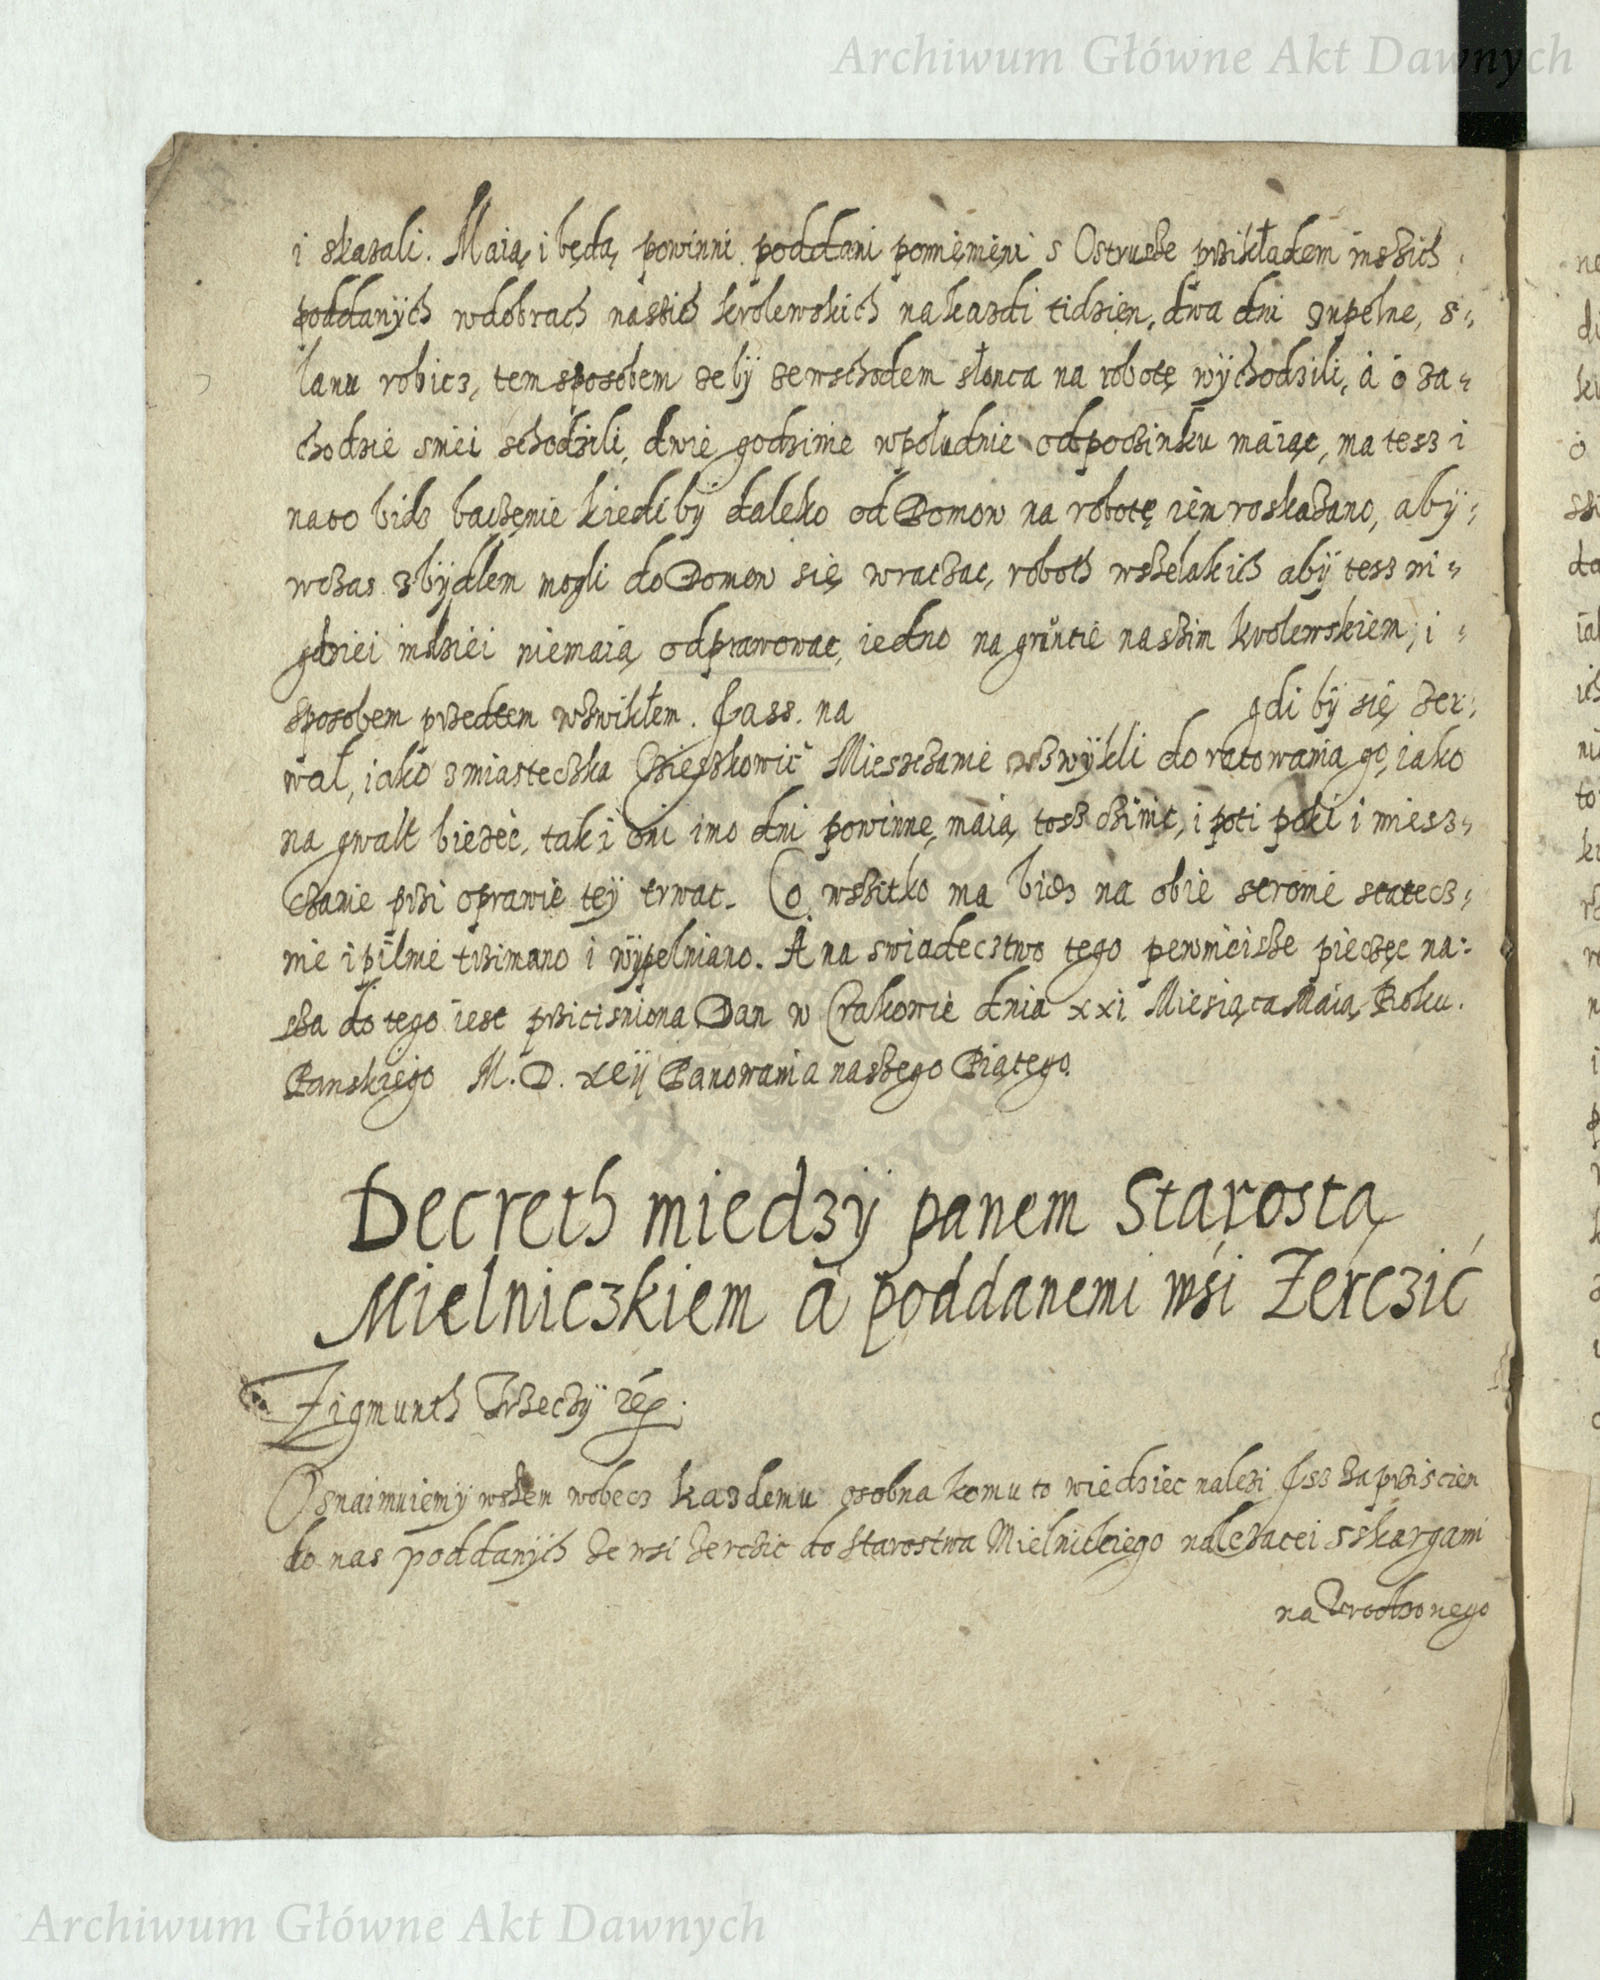 Archiwum Główne Akt Dawnych
i skazali. Maią i będą powinni poddani pomięnięni s Ostrusze przikładem inszich
poddanÿch wdobrach naszich krolewskich nakazdi tidzien, dwa dni zupełne, z
łanu robicz, tem sposobem zebÿ zewschodem słonca na robotę wÿchodzili, á ó za
chodzie sniei schodzili, dwie godzinie wpołudnie odpoczinku maiąc, ma tesz i
nato bidz baczęnie kiedibÿ daleko od Domow na robotę iem roskazano, abÿ
wczas zbÿdłem mogli do Domow się wraczac, roboth wszelakich abÿ tesz ni
gdziei indziei niemaią odprawowac, iedno na grůncie naszim krolewskiem, i
sposobem przedtem wzwikłem. Jass. na gdi bÿ się zer
wał, iako z miasteczka Mieszczanie wzwÿkli do ratowania go, iako
na gwałt bieżéć, tak i óni imo dni powinne, maią tosz czinic, i poti poki i miesz
czanie przi oprawie teÿ trwac. Co wszitko ma bidz na obie stronie statecz
nie i pilnie trzimano i wÿpełniano. A na swiadecztwo tego pewnieisze pieczęc na
sza do tego iest przicisniona Dan w Crakowie dnia xxi Miesiąca Maia Roku
Panskiego M. D. xcij Panowania naszego Piątego.
Decreth miedzÿ panem Starostą
Mielniczkiem á poddanemi wśi Żerczić
Zigmunth Trzeczÿ
Osnaimuiemÿ wszem wobecz każdemu osobna komu to wiedziec należi Jsz za prziscien
do nas poddanÿch ze wsi Zerczic do Starostwa Mielnickiego należacei s skargami
na Urodzonego
Archiwum Główne Akt Dawnych